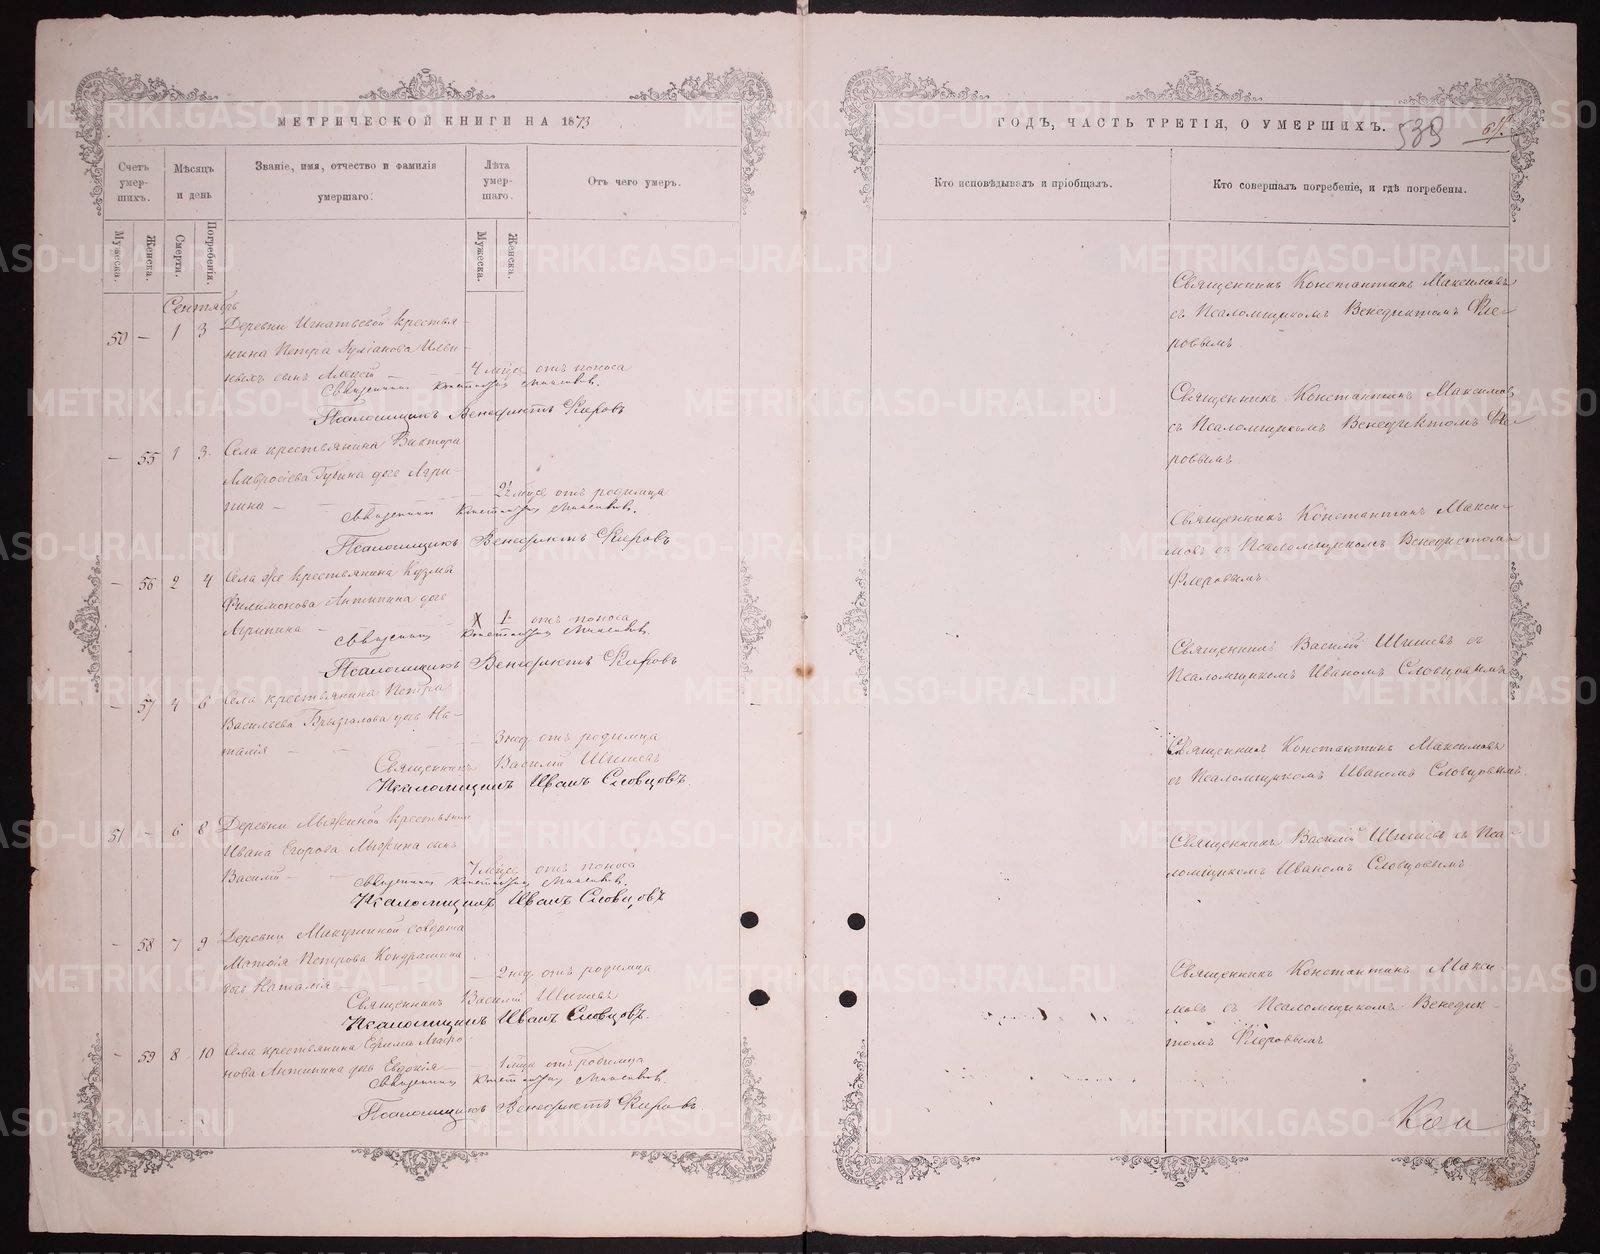 МЕТРИЧЕСКОЙ КНИГИ НА 1873
Счетъ умер-шихъ.
Мѣсяцъ и день
Званіе, имя, отчество и фамилія умершаго.
Лѣта умер-шаго.
Отъ чего умеръ.
Мужеска.
Женска.
Смерти.
Погребенія.
Мужеска.
Женска.
Сентябрь
50 — 1 3 Деревни Игнатьевой крестья-
нина Петра
ныхъ сынъ Алексѣй — 4 мѣся. отъ поноса
Священникъ Константинъ Максимовъ.
Псаломщикъ Венедиктъ Флеровъ
— 55 1 3 Села крестьянина Виктора
Амвросіева Губина дочь Агри-
пина — 2½ мѣся. отъ родимца
Священникъ Константинъ Максимовъ.
Псаломщикъ Венедиктъ Флеровъ
— 56 2 4 Села же крестьянина Кузмы
Филимонова Антипина дочь
Агрипина — 1 отъ поноса
Священникъ Константинъ Максимовъ.
Псаломщикъ Венедиктъ Флеровъ
— 57 4 6 Села крестьянина Петра
Васильева дочь На-
талія — 3 нед. отъ родимца
Священникъ Василій Шишевъ
Псаломщикъ Иванъ Словцовъ.
51 — 6 8 Деревни крестьянина
Ивана Егорова сынъ
Василій — 7 мѣся. отъ поноса
Священникъ Константинъ Максимовъ.
Псаломщикъ Иванъ Словцовъ
— 58 7 9 Деревни Макушиной солдата
Матѳія Петрова Кондрашина
дочь Наталія — 2 нед. отъ родимца
Священникъ Василій Шишевъ
Псаломщикъ Иванъ Словцовъ.
— 59 8 10 Села крестьянина Ефима
нова Антипина дочь Евдокія — 1 мѣся. отъ родимца
Священникъ Константинъ Максимовъ.
Псаломщикъ Венедиктъ Флеровъ
ГОДЪ, ЧАСТЬ ТРЕТІЯ, О УМЕРШИХЪ.
538
Кто исповѣдывалъ и пріобщалъ.
Кто совершалъ погребеніе, и гдѣ погребены.
Священникъ Константинъ Максимовъ
съ Псаломщикомъ Венедиктомъ Фле-
ровымъ
Священникъ Константинъ Максимовъ
съ Псаломщикомъ Венедиктомъ Фле-
ровымъ
Священникъ Константинъ Макси-
мовъ съ Псаломщикомъ Венедиктомъ
Флеровымъ
Священникъ Василій Шишевъ съ
Псаломщикомъ Иваномъ Словцовымъ
Священникъ Константинъ Максимовъ
съ Псаломщикомъ Иваномъ Словцовымъ.
Священникъ Василій Шишевъ съ Пса-
ломщикомъ Иваномъ Словцовымъ
Священникъ Константинъ Макси-
мовъ съ Псаломщикомъ Венедик-
томъ Флеровымъ
METRIKI.GASO-URAL.RU